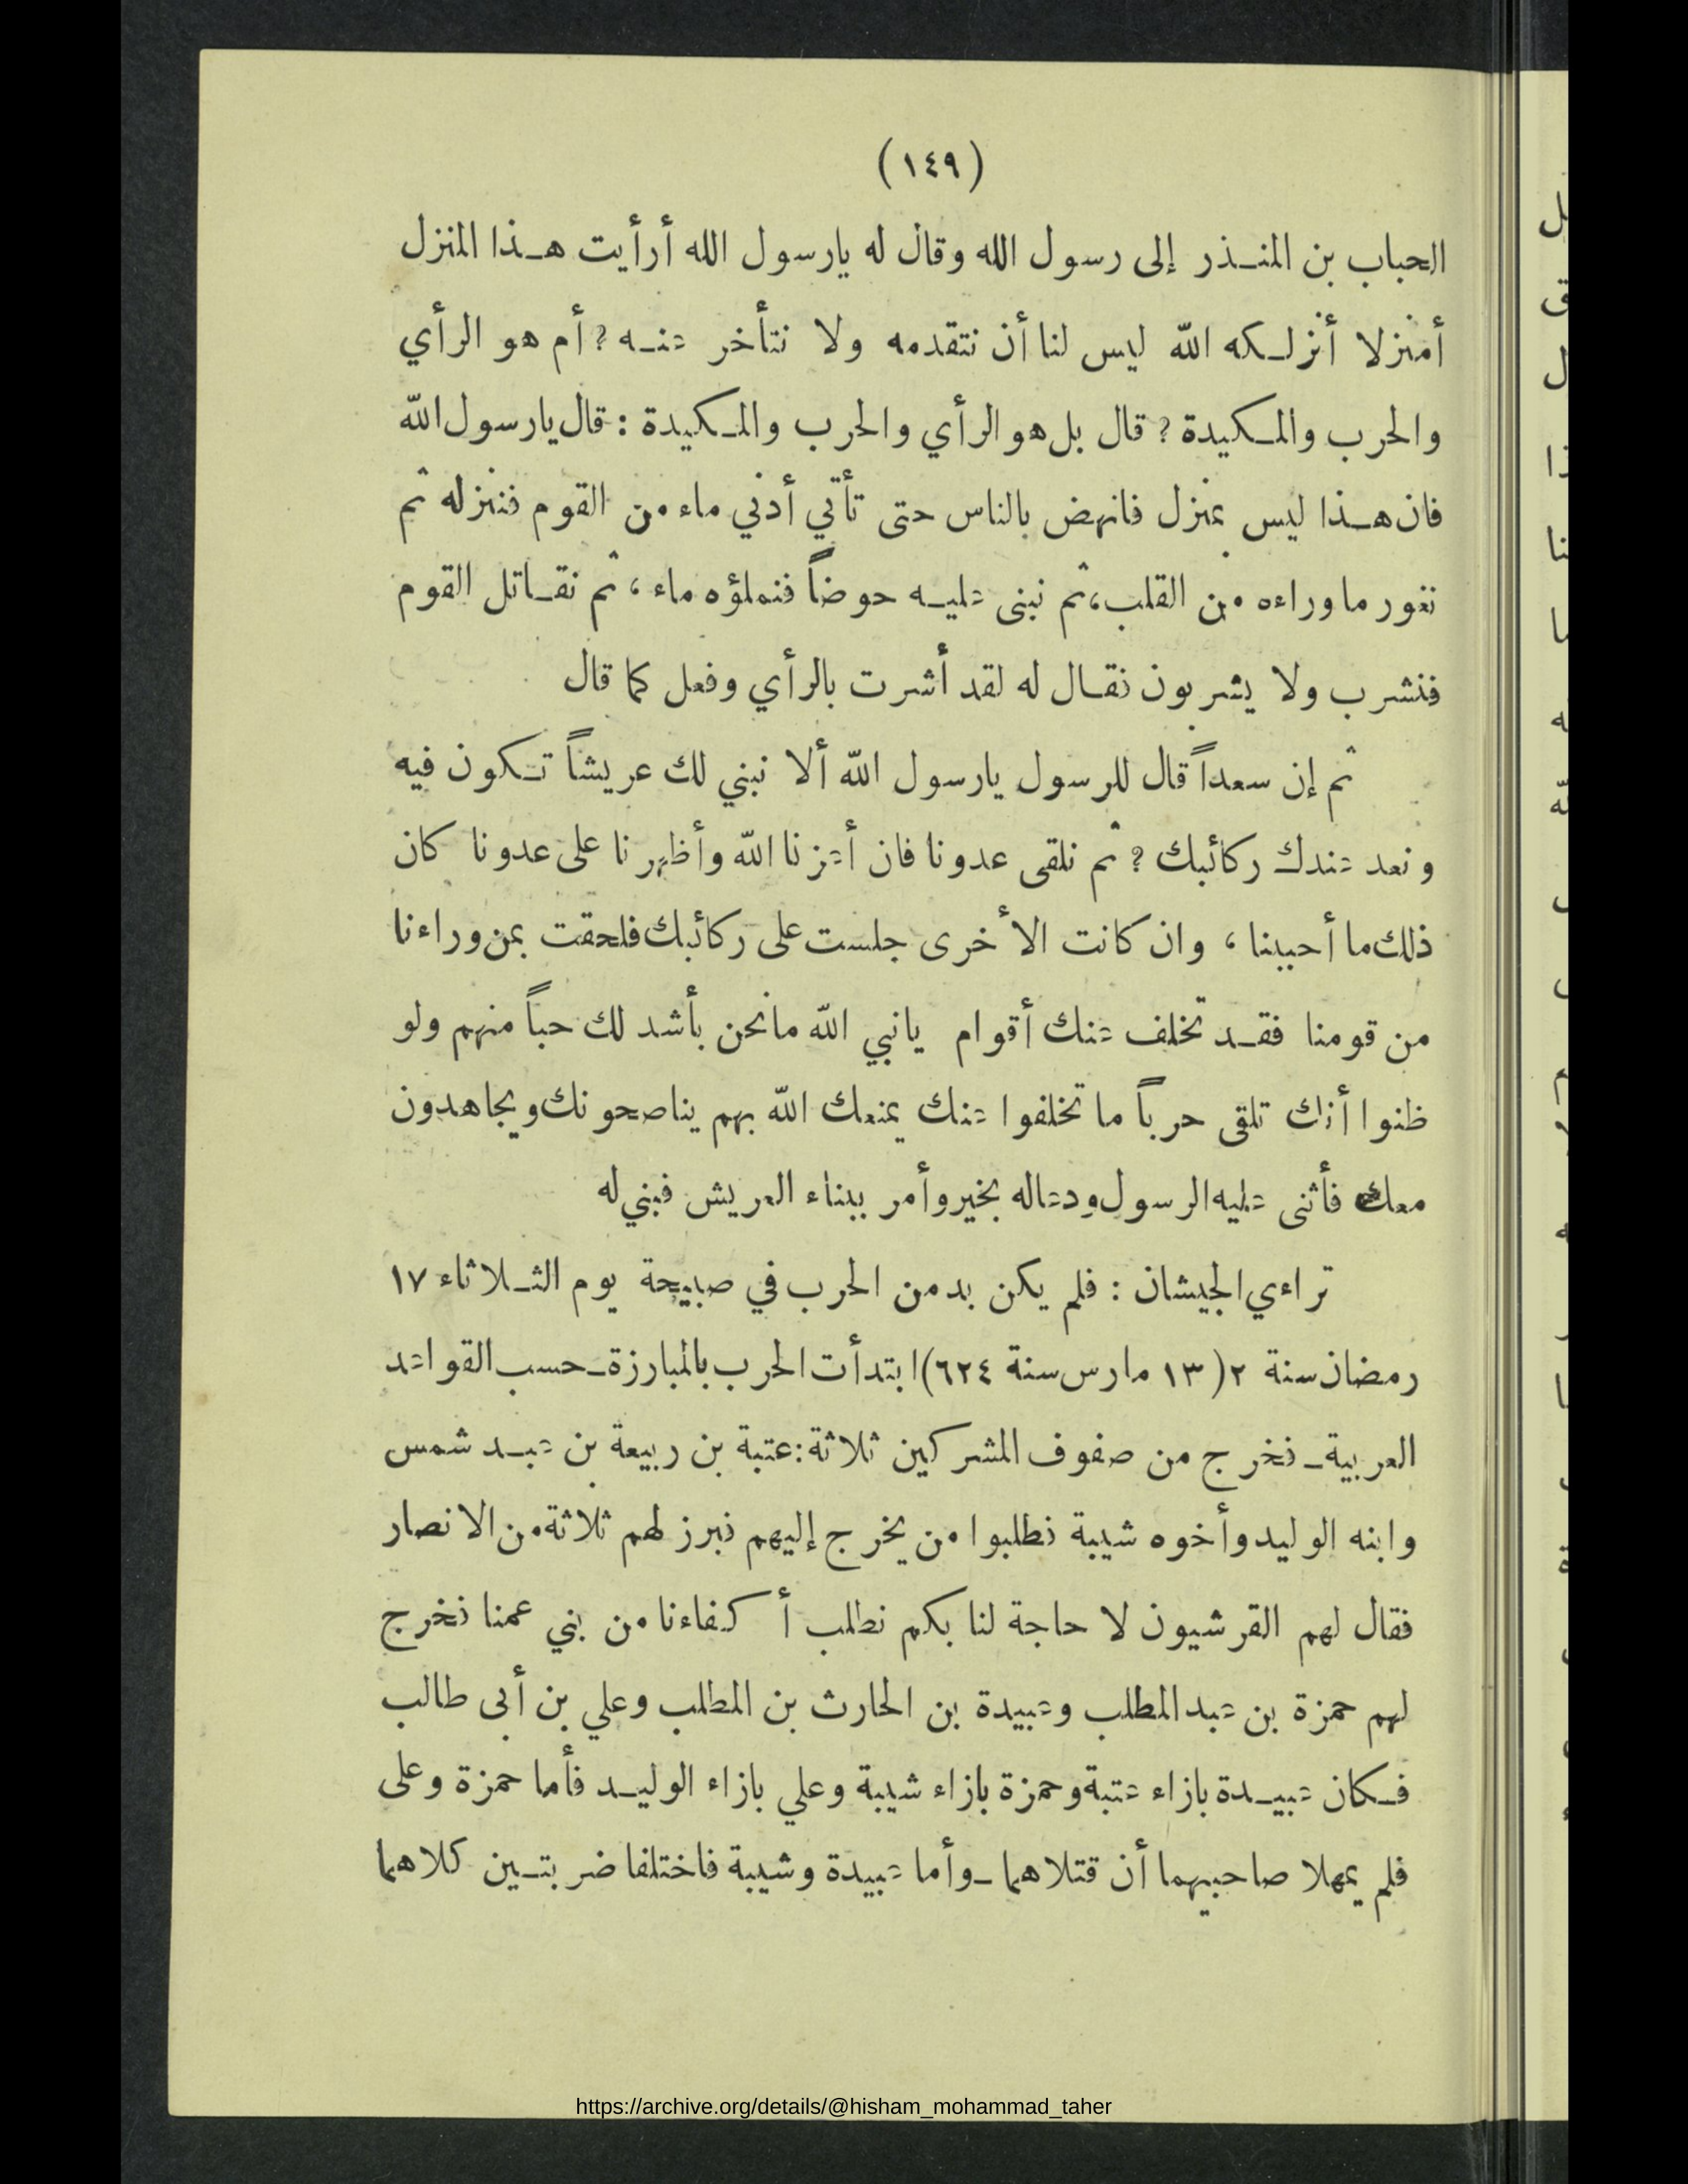 (١٤٩)
الحباب بن المنذر إلى رسول الله وقال له يارسول الله أرأيت هذا المنزل
أمنزلا أنزلكه الله ليس لنا أن نتقدمه ولا نتأخر عنه؟ أم هو الرأي
والحرب والمكيدة؟ قال بل هو الرأي والحرب والمكيدة : قال يارسول الله
فان هذا ليس بمنزل فانهض بالناس حتى تأتي أدنى ماء من القوم فننزله ثم
نغور ما وراءه من القلب، ثم نبنى عليه حوضاً فنملؤه ماء ، ثم نقاتل القوم
فنشرب ولا يشربون فقال له لقد أشرت بالرأي وفعل كما قال
ثم إن سعداً قال للرسول يارسول الله ألا نبني لك عريشاً تكون فيه
ونعد عندك ركائبك ? ثم نلقى عدونا فان أعزنا الله وأظهرنا على عدونا كان
ذلك ما أحببنا ، وان كانت الأخرى جلست على ركائبك فلحقت بمن وراءنا
من قومنا فقد تخلف عنك أقوام يانبي الله مانحن بأشد لك حباً منهم ولو
ظنوا أنك تلقى حرباً ما تخلفوا عنك يمنعك الله بهم يناصحونك ويجاهدون
معك فأثنى عليه الرسول ودعاله بخير وأمر ببناء العريش فبني له
تراءي الجيشان : فلم يكن بد من الحرب في صبيحة يوم الثلاثاء ١٧
رمضان سنة ٢ (١٣ مارس سنة ٦٢٤) ابتدأت الحرب بالمبارزة ـ حسب القواعد
العربية ـ فخرج من صفوف المشركين ثلاثة : عتبة بن ربيعة بن عبد شمس
وابنه الوليد وأخوه شيبة فطلبوا من يخرج إليهم فبرز لهم ثلاثة من الانصار
فقال لهم القرشيون لا حاجة لنا بكم نطلب أكفاءنا من بني عمنا فخرج
لهم حمزة بن عبد المطلب وعبيدة بن الحارث بن المطلب وعلي بن أبى طالب
فكان عبيدة بازاء عتبة وحمزة بازاء شيبة وعلي بازاء الوليد فأما حمزة وعلى
فلم يمهلا صاحبيهما أن قتلاهما ـ وأما عبيدة وشيبة فاختلفا ضربتين كلاهما
https://archive.org/details/@hisham_mohammad_taher